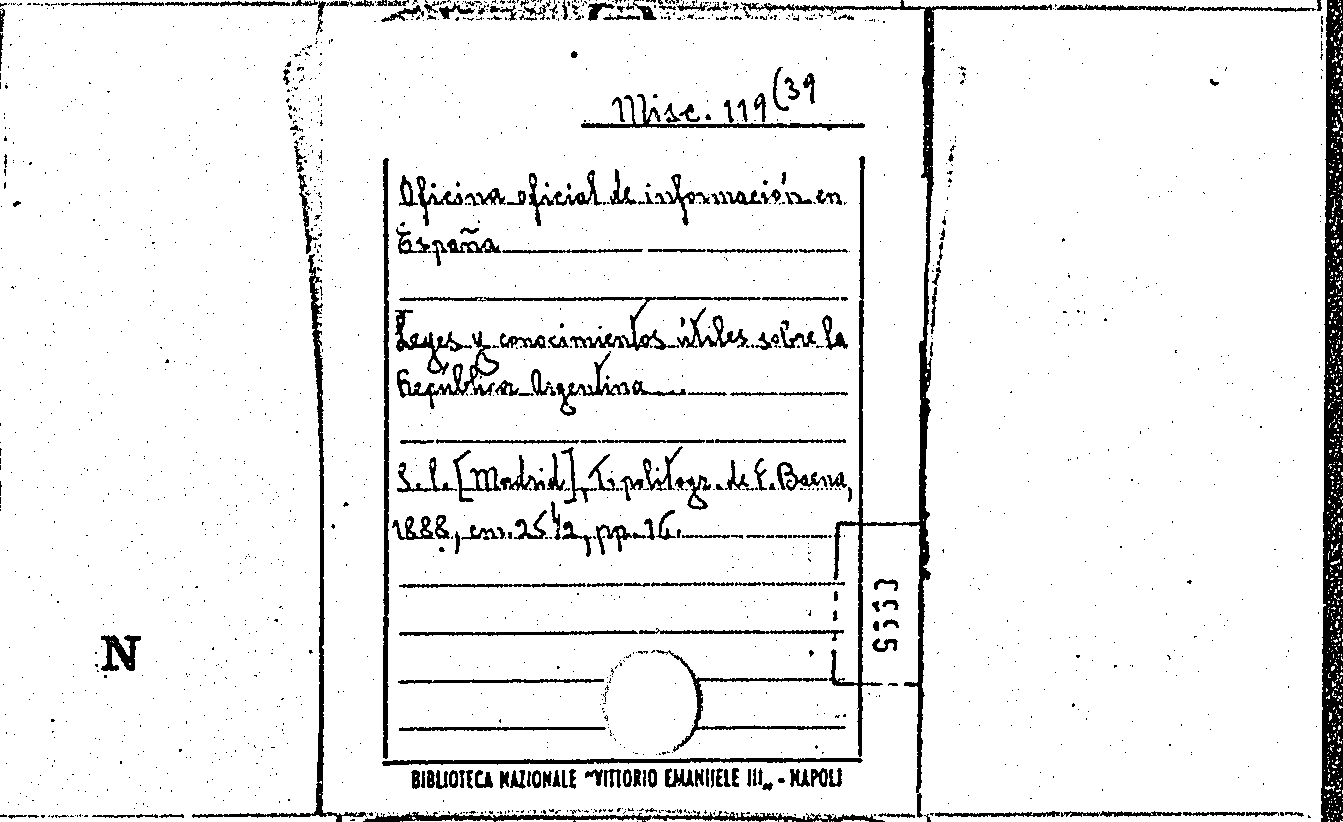 Misc. 119(39
Oficina oficial de información en
España
Leyes y conocimientos útiles sobre la
República Argentina
S.l. [Madrid], Tipolitogr. de F. Baena,
1888, cm. 25 1/2, pp. 16.
N
BIBLIOTECA NAZIONALE "VITTORIO EMANUELE III„ - NAPOLI